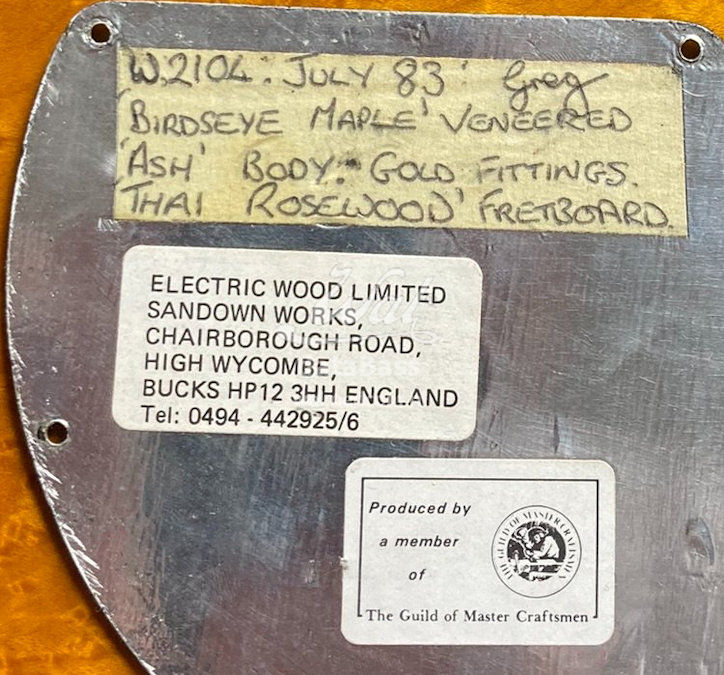 W.2104. JULY 83: Greg
'BIRDSEYE MAPLE' VENEERED
'ASH' BODY. GOLD FITTINGS.
'THAI ROSEWOOD' FRETBOARD.
ELECTRIC WOOD LIMITED
SANDOWN WORKS,
CHAIRBOROUGH ROAD,
HIGH WYCOMBE,
BUCKS HP12 3HH ENGLAND
Tel: 0494 - 442925/6
Produced by
a member
of
The Guild of Master Craftsmen
THE GUILD OF MASTER CRAFTSMEN